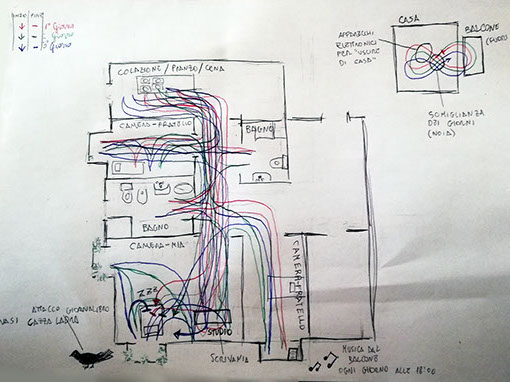 INIZIO / FINE
1° GIORNO
2° GIORNO
3° GIORNO
CASA
BALCONE
(FUORI)
APPARECCHI
ELETTRONICI
PER "USCIRE
DI CASA"
SOMIGLIANZA
DEI GIORNI
(NOIA)
COLAZIONE / PRANZO / CENA
CAMERA-FRATELLO
BAGNO
BAGNO
CAMERA-MIA
CAMERA-FRATELLO
ZZZ
STUDIO
SCRIVANIA
ATTACCO GIORNALIERO
VASI GAZZA LADRA
MUSICA DAL
BALCONE
OGNI GIORNO ALLE 18:00